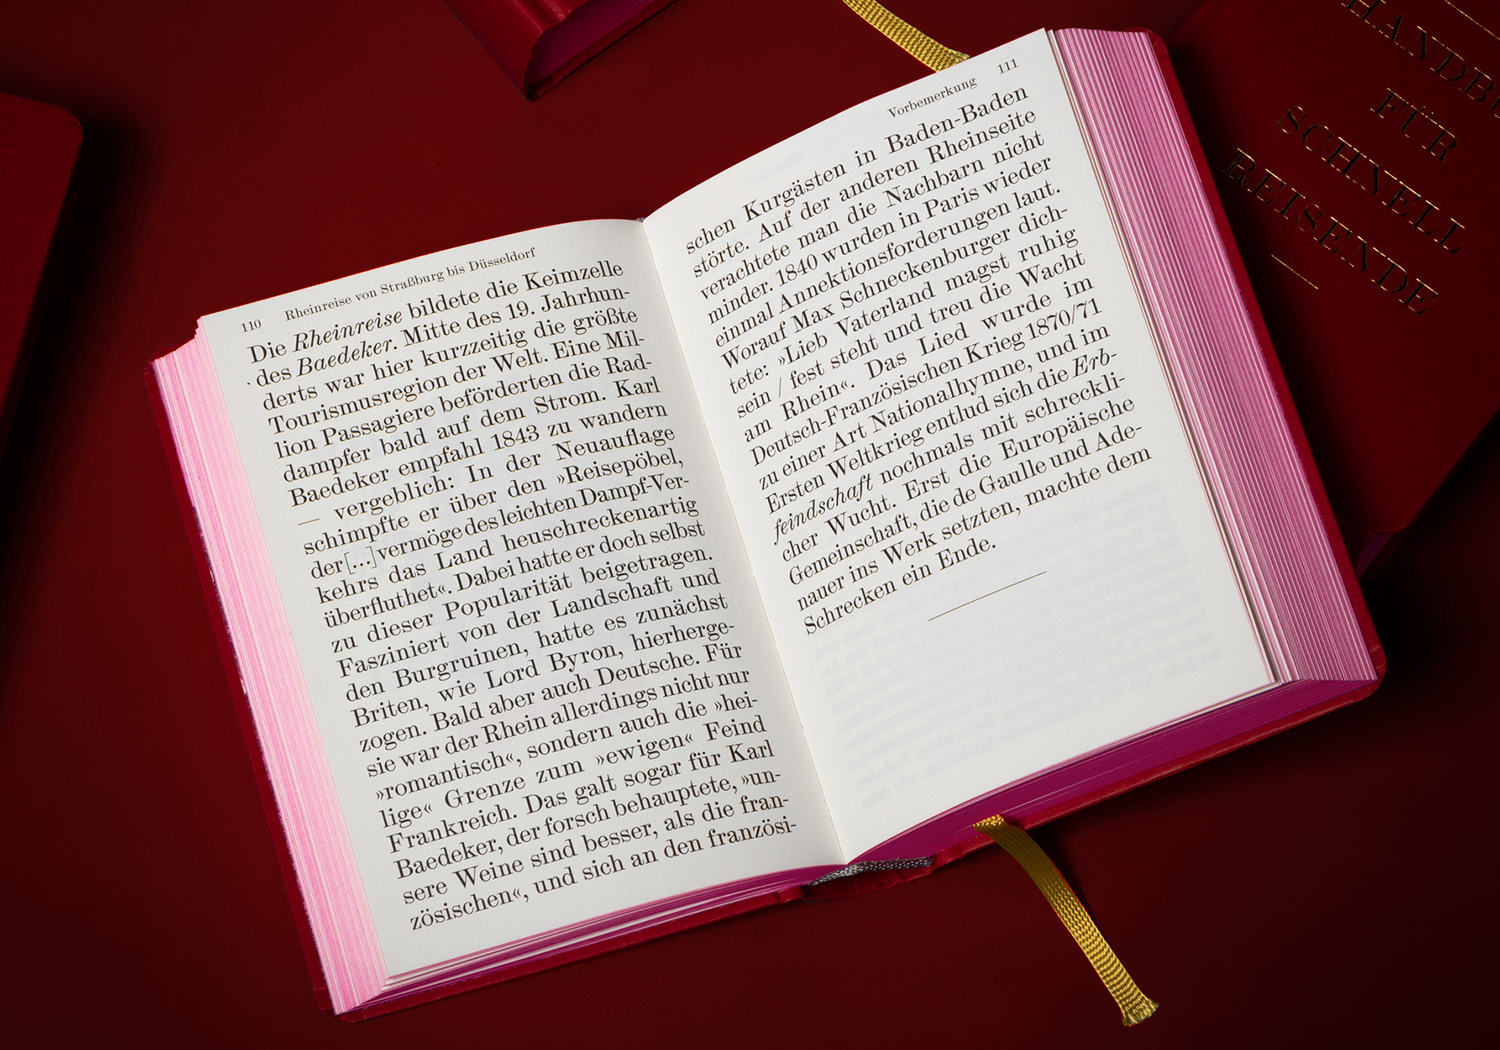 110 Rheinreise von Straßburg bis Düsseldorf
Die Rheinreise bildete die Keimzelle
des Baedeker. Mitte des 19. Jahrhun-
derts war hier kurzzeitig die größte
Tourismusregion der Welt. Eine Mil-
lion Passagiere beförderten die Rad-
dampfer bald auf dem Strom. Karl
Baedeker empfahl 1843 zu wandern
— vergeblich: In der Neuauflage
schimpfte er über den »Reisepöbel,
der [...] vermöge des leichten Dampf-Ver-
kehrs das Land heuschreckenartig
überfluthet«. Dabei hatte er doch selbst
zu dieser Popularität beigetragen.
Fasziniert von der Landschaft und
den Burgruinen, hatte es zunächst
Briten, wie Lord Byron, hierherge-
zogen. Bald aber auch Deutsche. Für
sie war der Rhein allerdings nicht nur
»romantisch«, sondern auch die »hei-
lige« Grenze zum »ewigen« Feind
Frankreich. Das galt sogar für Karl
Baedeker, der forsch behauptete, »un-
sere Weine sind besser, als die fran-
zösischen«, und sich an den französi-
Vorbemerkung 111
schen Kurgästen in Baden-Baden
störte. Auf der anderen Rheinseite
verachtete man die Nachbarn nicht
minder. 1840 wurden in Paris wieder
einmal Annektionsforderungen laut.
Worauf Max Schneckenburger dich-
tete: »Lieb Vaterland magst ruhig
sein / fest steht und treu die Wacht
am Rhein«. Das Lied wurde im
Deutsch-Französischen Krieg 1870/71
zu einer Art Nationalhymne, und im
Ersten Weltkrieg entlud sich die Erb-
feindschaft nochmals mit schreckli-
cher Wucht. Erst die Europäische
Gemeinschaft, die de Gaulle und Ade-
nauer ins Werk setzten, machte dem
Schrecken ein Ende.
HANDBU
FÜR
SCHNELL
REISENDE